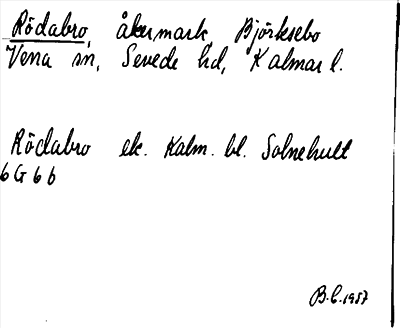 Rödabro, åkermark, Björksebo
Vena sn, Sevede hd, Kalmar l.
Rödabro ek. Kalm. bl. Solnehult
6 G 6 b
B.C. 1957